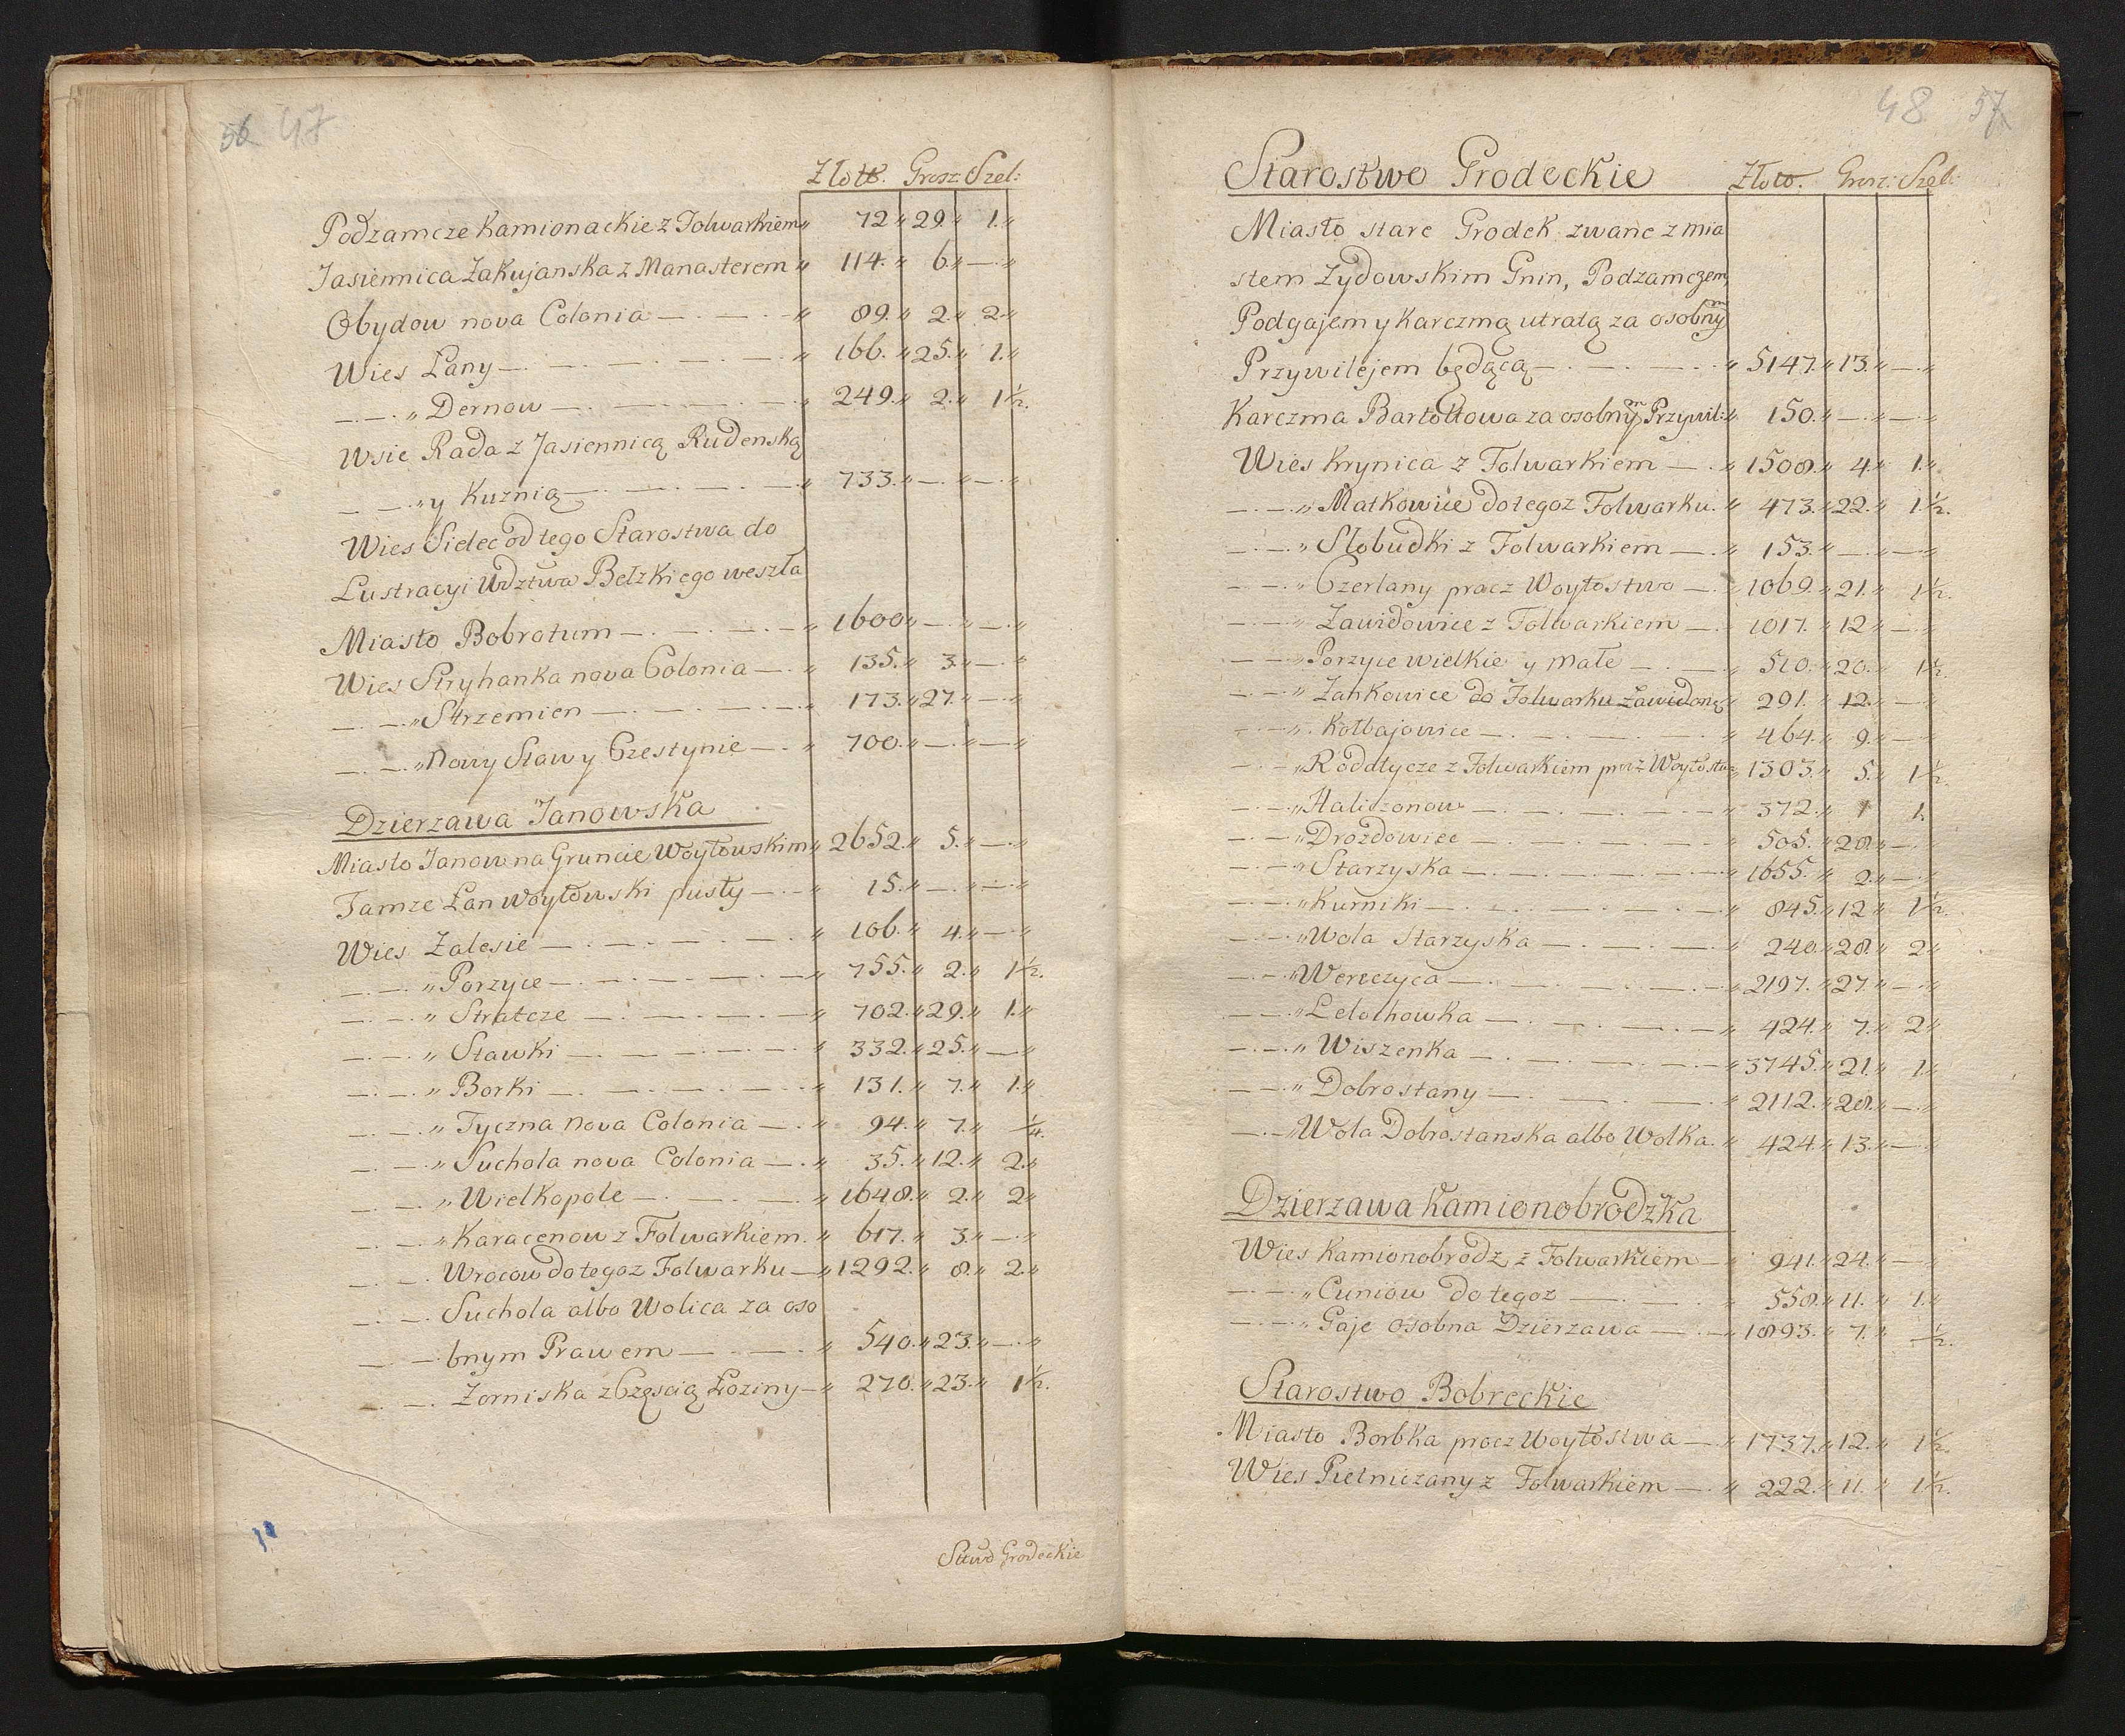 56 47
Złott. Grosz: Szel:
Podzamcze Kamionackie z Folwarkiem „ 72 „ 29. „ 1. „
Jasiennica Zakujanska z Manasterem „ 114. „ 6. „ — „
Obydow nova Colonia — . — . — „ 89. „ 2. „ 2. „
Wies Łany — . — . — . — „ 166. „ 25. „ 1. „
— . — . „ Dernow — . — . — . — „ 249. „ 2. „ 1½.
Wsie Rada z Jasiennicą Rudenską
— . — . „ y Kuznią — . — . — „ 733. „ — . „ — . „
Wies Sielec od tego Starostwa do
Lustracyi Wdztwa Bełzkiego weszła
Miasto Bobrotum — . — . — „ 1600 „ — . „ — . „
Wies Stryhanka nova Colonia — . „ 135. „ 3. „ — . „
— . — . „ Strzemien — . — . — „ 173. „ 27. „ — . „
— . — . „ Nowy Staw y Czestynie — . „ 700. „ — . „ — „
Dzierzawa Janowska
Miasto Janow na Gruncie Woytowskim „ 2652. „ 5. „ — . „
Tamze Łan Woytowski pusty — . — „ 15. „ — . „ — . „
Wies Zalesie — . — . — . — „ 106. „ 4. „ — . „
— . — . „ Porzyce — . — . — . — „ 755. „ 2. „ 1½.
— . — . „ Stratcze — . — . — . — „ 702. „ 29. „ 1. „
— . — . „ Stawki — . — . — . — „ 332. „ 25. „ — . „
— . — . „ Borki — . — . — . — „ 131. „ 7. „ 1. „
— . — . „ Tyczna nova Colonia — . „ 94. „ 7. „ ¼.
— . — . „ Suchola nova Colonia — . „ 35. „ 12. „ 2. „
— . — . „ Wielkopole — . — . — „ 1648. „ 2. „ 2 „
— . — . „ Karacenow z Folwarkiem. „ 617. „ 3. „ — . „
— . — . Wrocow do tegoz Folwarku — „ 1292. „ 8. „ 2. „
— . — . Suchola albo Wolica za oso
— . — bnym Prawem — . — . — „ 540. „ 23. „ — . „
— . — . Zorniska z Częscią Łoziny — „ 270. „ 23. „ 1½.
Sttwo Grodeckie
48 57
Starostwo Grodeckie Złoto. Grosz: Szel:
Miasto stare Grodek zwane z mia
stem Zydowskim Gnin, Podzamczem,
Podgajem y Karczmą utratą za osobnym
Przywilejem będącą — . — . — . „ 5147. „ 13. „ — . „
Karczma Bartołtowa za osobnym Przywil: „ 150. „ — . „ — . „
Wies Krynica z Folwarkiem — . „ 1508. „ 4. „ 1. „
— . — . „ Matkowice do tegoz Folwarku. „ 473. „ 22. „ 1½.
— . — . „ Słobudki z Folwarkiem — . „ 153. „ — . „ — . „
— . — . „ Czerlany procz Woytostwa — . „ 1069. „ 21. „ 1½.
— . — . „ Zawidowice z Folwarkiem — . „ 1017. „ 12 „ — . „
— . — . „ Porzyce wielkie y małe — . — „ 510. „ 20. „ 1½.
— . — . „ Zankowice do Folwarku Zawidow: „ 291. „ 12. „ — . „
— . — . „ Kołbajowice — . — . — . — „ 464. „ 9. „ — . „
— . — . „ Roddtycze z Folwarkiem procz Woytostwa „ 1303. „ 5. „ 1½.
— . — . „ Haliczonow — . — . — . — „ 372. „ 1 1.
— . — . „ Drozdowice — . — . — . — „ 505. „ 28. „ — . „
— . — . „ Starzyska — . — . — . — „ 1655. „ 2. „ — . „
— . — . „ Kurniki — . — . — . — „ 845. „ 12 „ 1½.
— . — . „ Wola Starzyska — . — . — „ 240. „ 28. „ 2 „
— . — . „ Wereszyca — . — . — . — „ 2197. „ 27 „ — . „
— . — . „ Lelochowka — . — . — „ 424. „ 7. „ 2 „
— . — . „ Wiszenka — . — . — . — „ 3745. „ 21. „ 1. „
— . — . „ Dobrostany — . — . — „ 2112. „ 28. „ — . „
— . — . „ Wola Dobrostanska albo Wolka. „ 424. „ 13. „ — . „
Dzierzawa Kamionobrodzka
Wies Kamionobrodz z Folwarkiem — „ 941. „ 24. „ — . „
— . — . „ Cuniow do tegoz — . — . „ 558. „ 11. „ 1. „
— . — . „ Gaje osobna Dzierzawa — . — „ 1893. „ 7. „ ½.
Starostwo Bobreckie
Miasto Borbka procz Woytostwa — . „ 1737. „ 12. „ 1½.
Wies Pietniczany z Folwarkiem — . „ 222. „ 11. „ 1½.